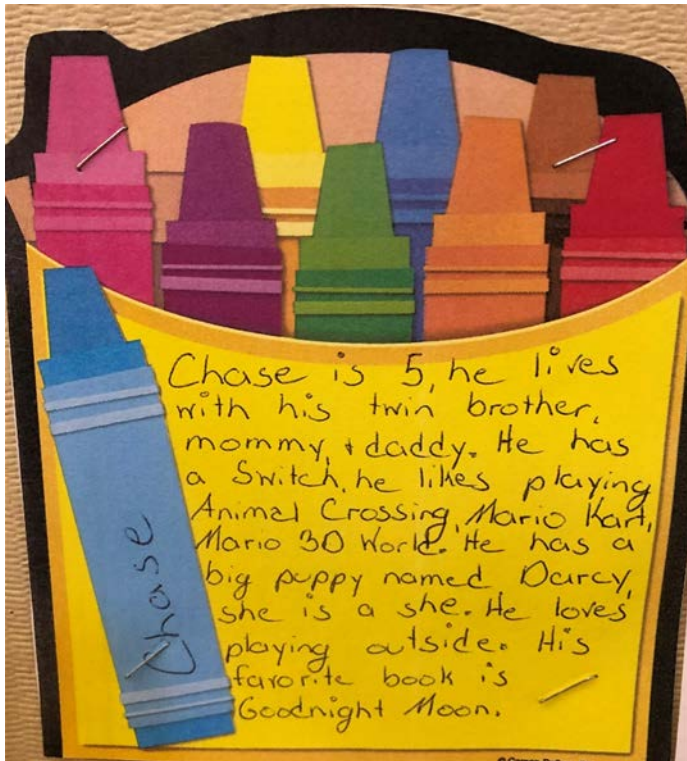 Chase is 5, he lives
with his twin brother,
mommy, + daddy. He has
a Switch, he likes playing
Animal Crossing, Mario Kart,
Mario 3D World. He has a
big puppy named Darcy,
she is a she. He loves
playing outside. His
favorite book is
Goodnight Moon.
Chase